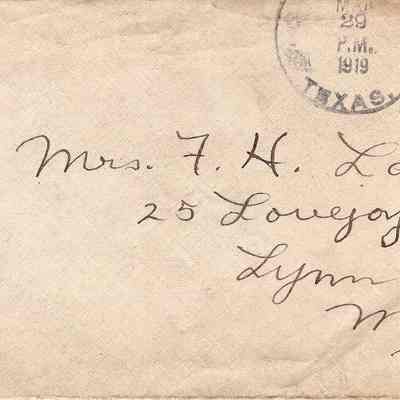 MAR
29
P.M.
1919
TEXAS.
Mrs. F. H.
25 Lovejoy
Lynn